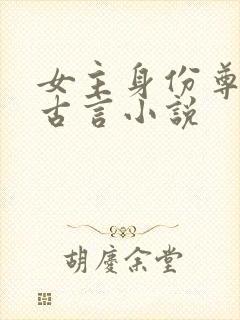 女主身份尊
古言小说
胡庆余堂